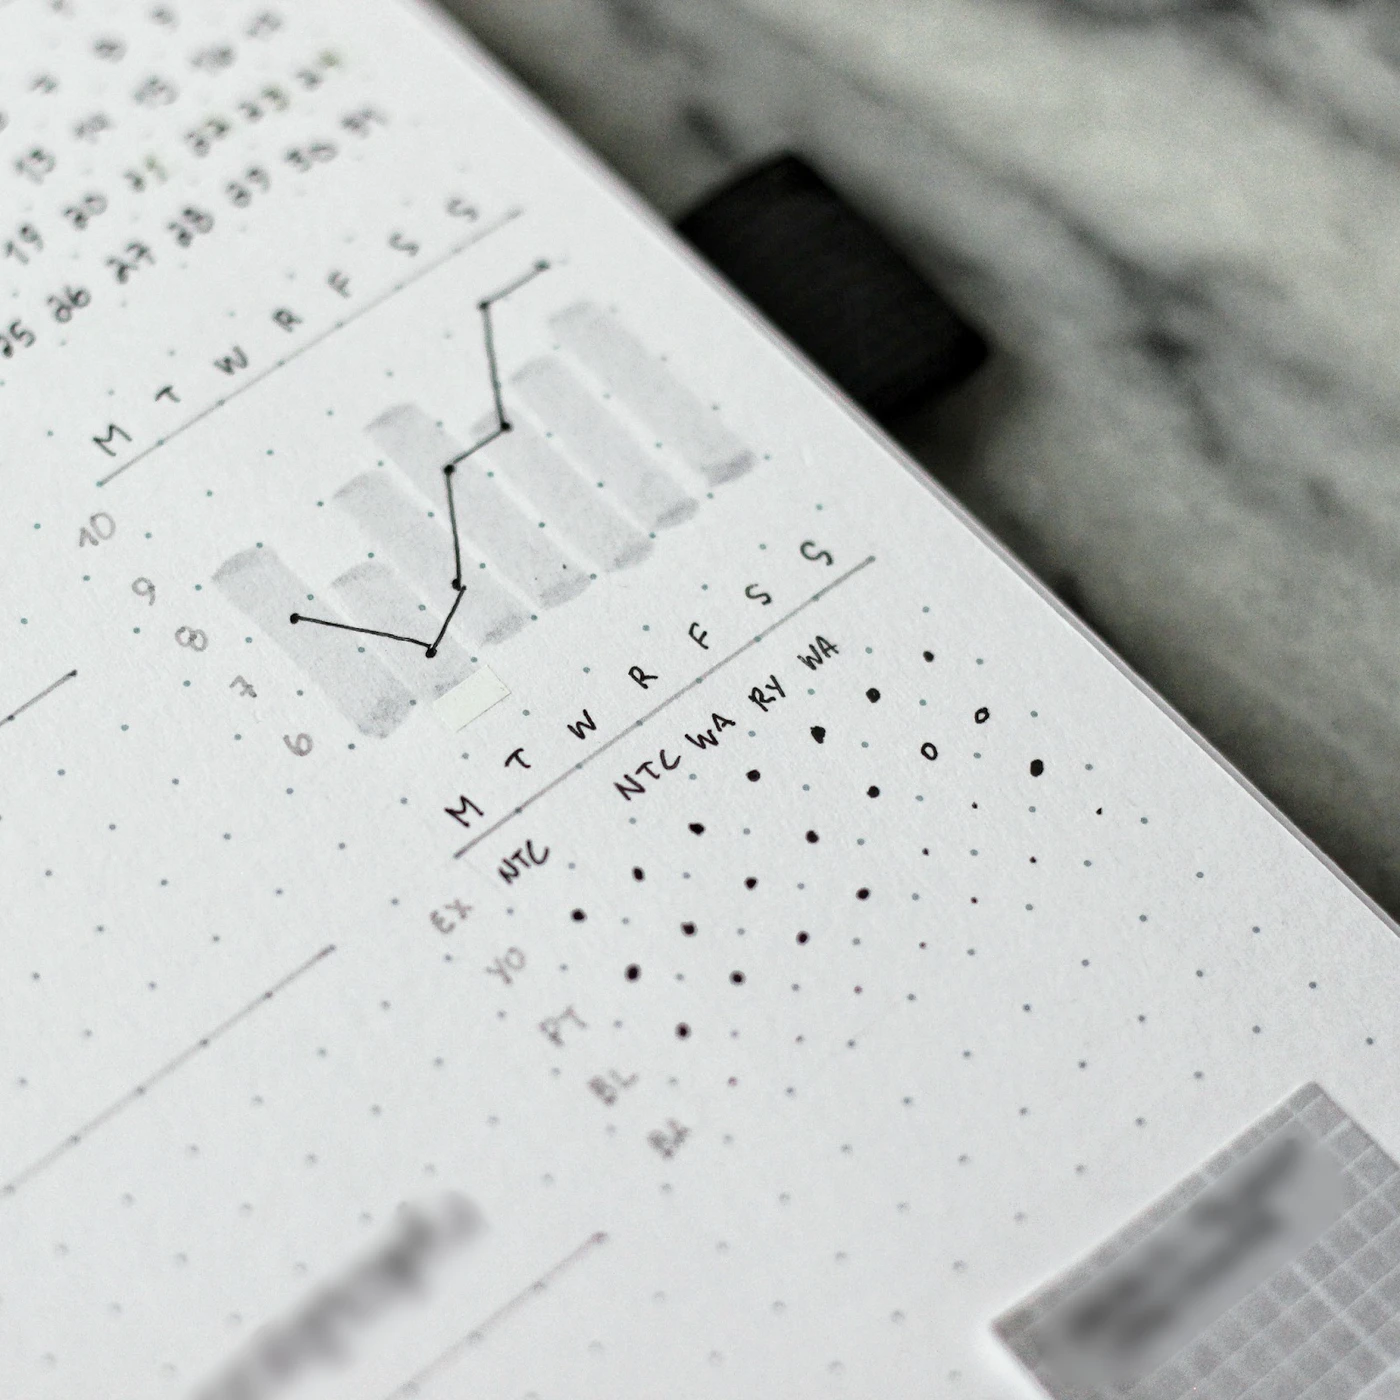 13 14 15
19 20 21 22 23 24
25 26 27 28 29 30 31
M T W R F S S
10
9
8
7
6
M T W R F S S
NTC NTC WA RY WA
EX
YO
PT
BL
BA